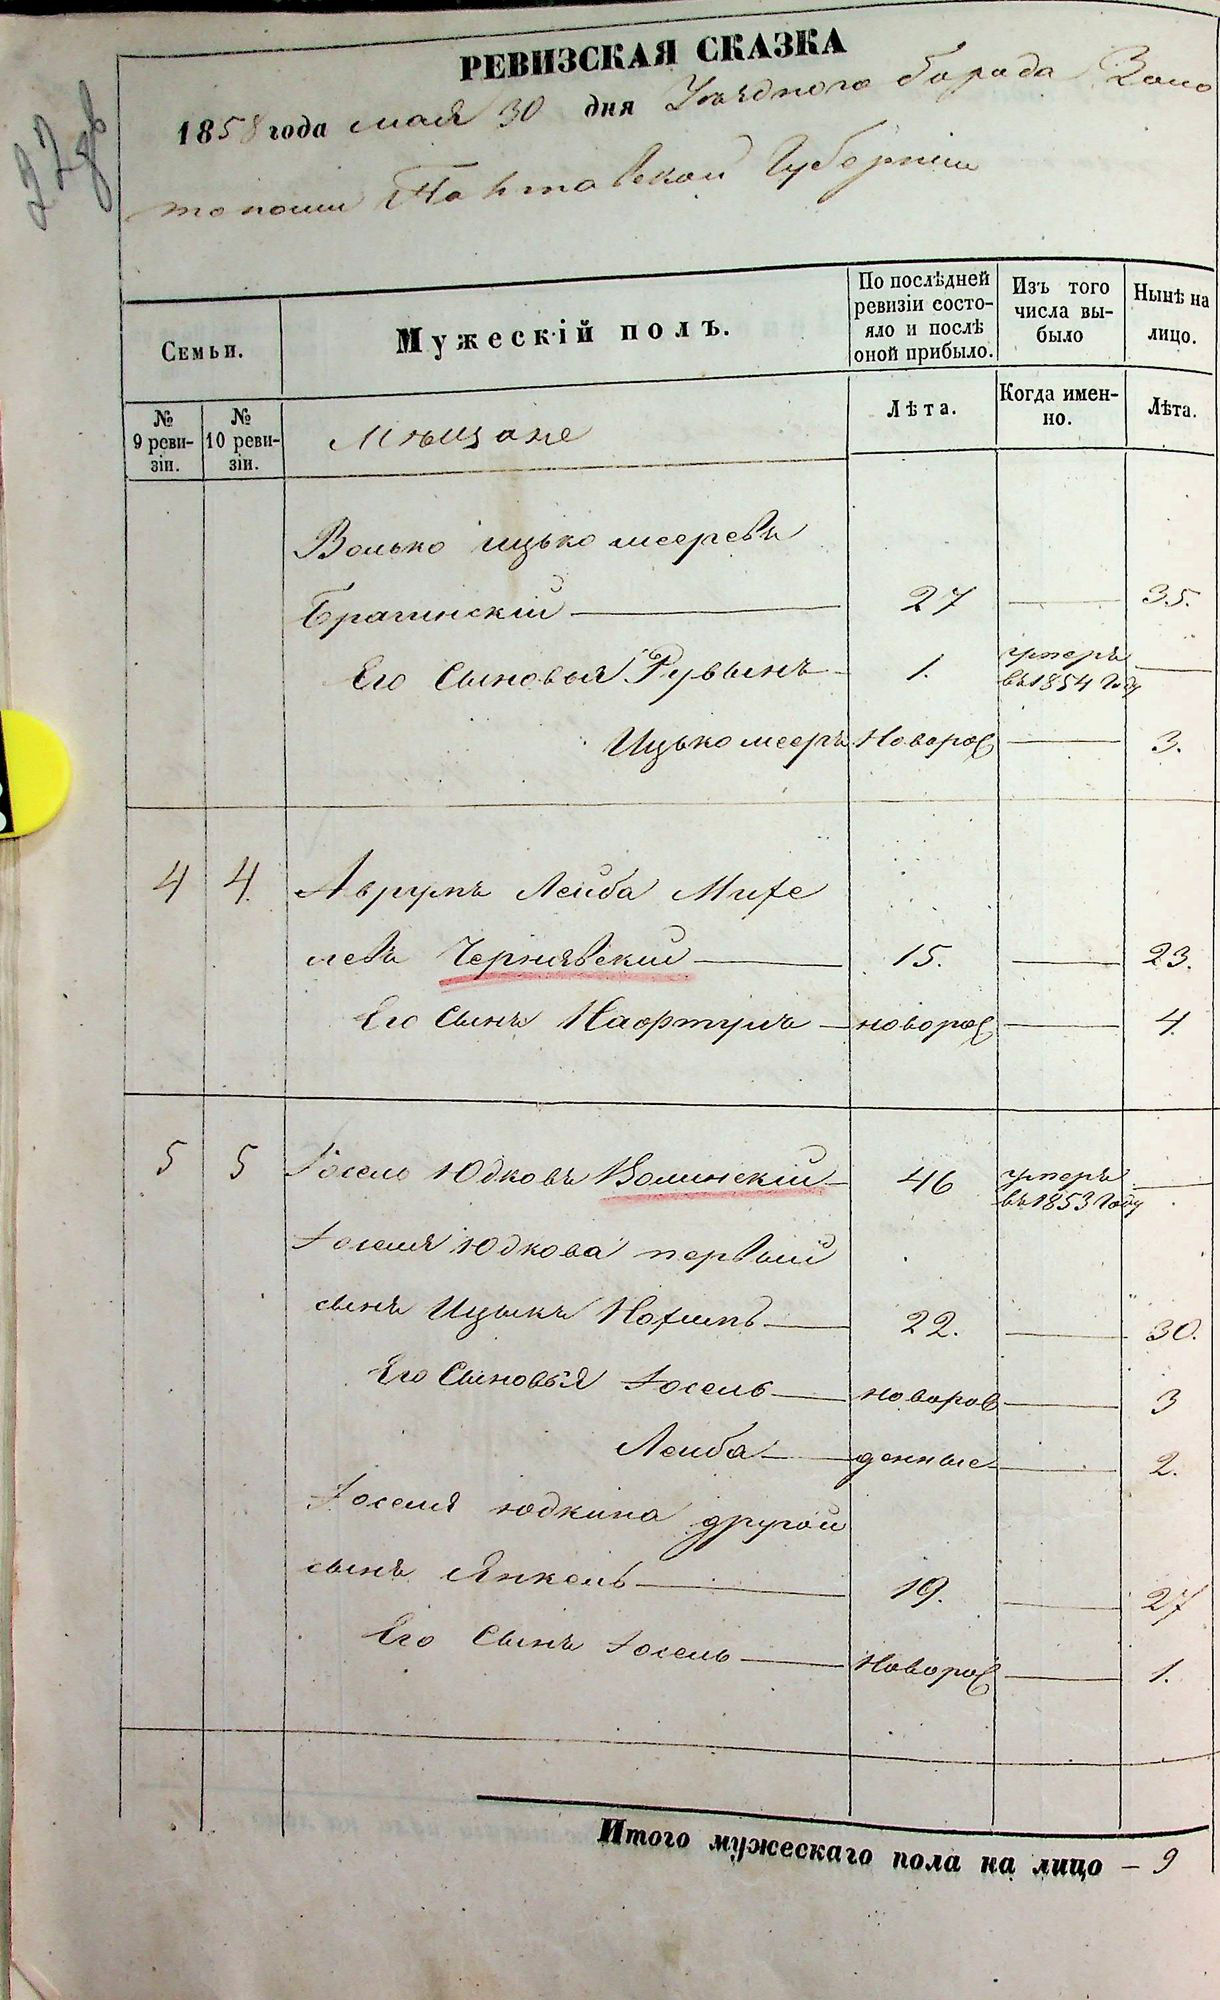 РЕВИЗСКАЯ СКАЗКА
1858 года мая 30 дня Уѣзднаго города Золо
тоноши Полтавской Губерніи
Семьи.
Мужескій полъ.
По послѣдней ревизіи состо-яло и послѣ оной прибыло.
Изъ того числа вы-было
Нынѣ на лицо.
№ 9 реви-зіи.
№ 10 реви-зіи.
Мѣщане
Лѣта.
Когда имен-но.
Лѣта.
Волько Ицько мееревъ
Брагинскій 27 35.
Его Сыновья Рувынъ 1. умеръ въ 1854 году
Ицько мееръ Новорож 3.
4 4. Аврумъ Лейба Михе
левъ Чернявскій 15. 23.
Его Сынъ Нафтулъ новорож 4.
5 5 Іосель Юдковъ Волинскій 46 умеръ въ 1853 году
Іоселя Юдкова первый
сынъ Ицыкъ Нохимъ 22. 30.
Его Сыновья Іосель новорож 3
Лейба денные 2.
Іоселя Юдкина другой
сынъ Янкель 19. 27
Его Сынъ Іосель Новорож 1.
Итого мужескаго пола на лицо – 9